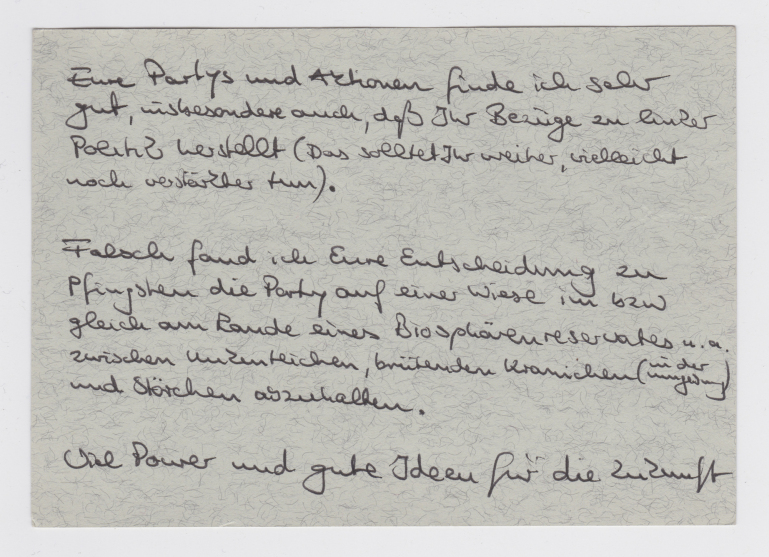 Eure Partys und Aktionen finde ich sehr
gut, insbesondere auch, daß Ihr Bezüge zu linker
Politik herstellt (Das solltet Ihr weiter, vielleicht
noch verstärkter tun).
Falsch fand ich Eure Entscheidung zu
Pfingsten die Party auf einer Wiese im bzw
gleich am Rande eines Biosphärenreservates u.a.
zwischen, brütenden Kranichen (in der
umgebung)
und Störchen abzuhalten.
Viel Power und gute Ideen für die Zukunft